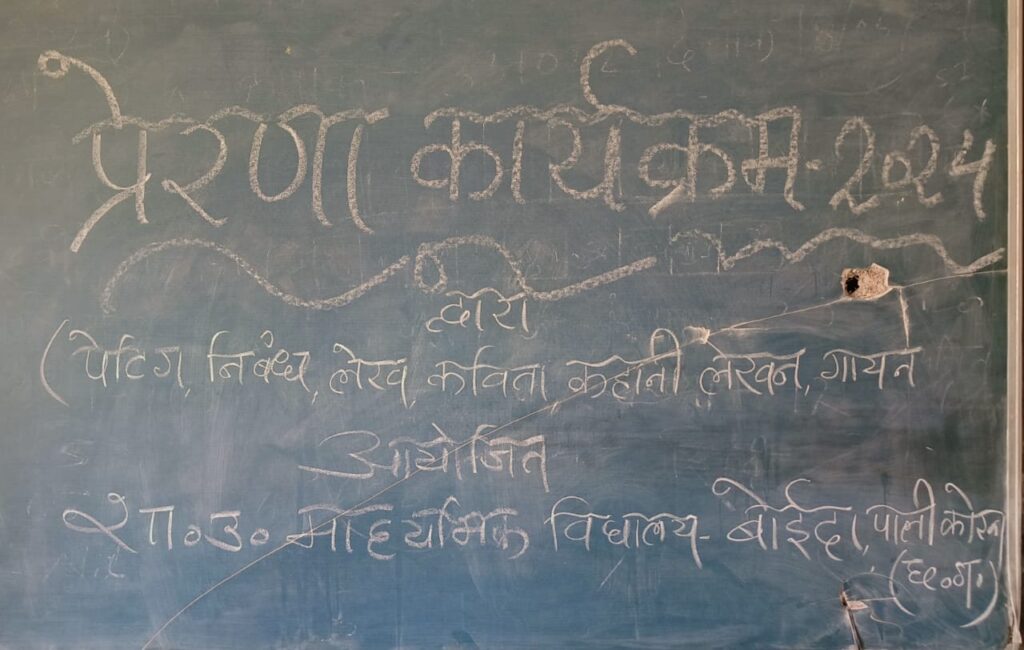 प्रेरणा कार्यक्रम - २०२५
द्वारा
(पेंटिग, निबंध, लेख, कविता, कहानी, लेखन, गायन
आयोजित
शा॰उ॰ माध्यमिक विद्यालय - बोईदा, पाली कोरबा
(छ॰ग॰)